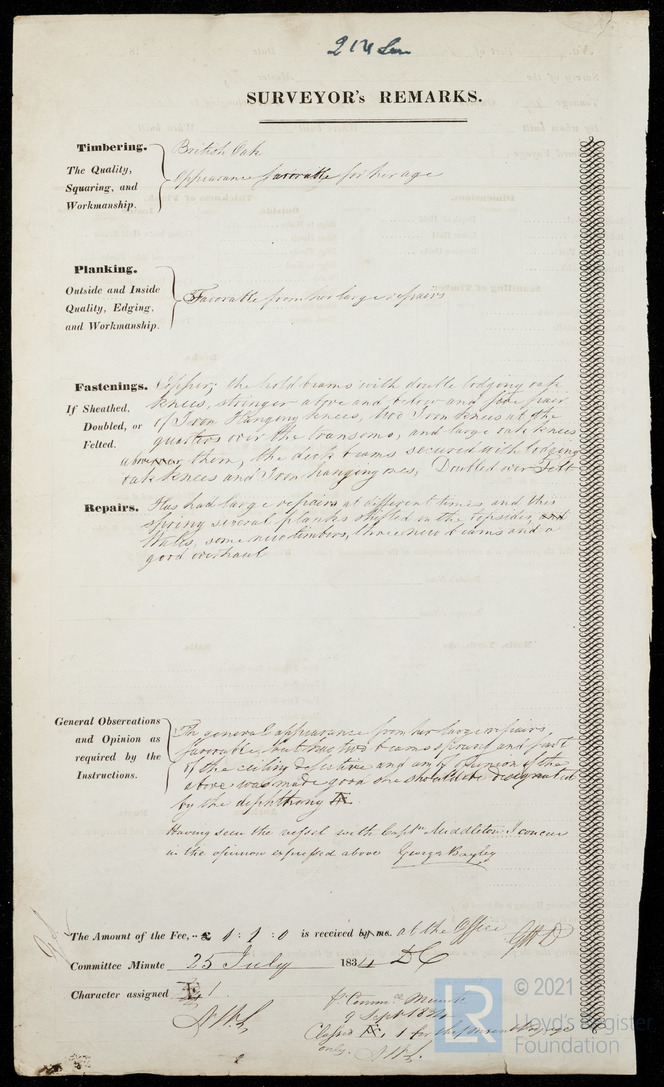 214 Lon
SURVEYOR's REMARKS.
Timbering.
The Quality,
Squaring, and
Workmanship.
British Oak
Appearance favorable for her age
Planking.
Outside and Inside
Quality, Edging,
and Workmanship.
Favorable from her large repairs
Fastenings.
If Sheathed,
Doubled, or
Felted.
Copper; the hold beams with double lodging oak
knees, stringer above and below and pair
of Iron Hanging knees, two Iron knees at the
quarters over the transoms, and large oak knees
above them, the deck beams secured with lodging
oak knees and Iron hanging ones, Doubled over Felt
Repairs.
Has had large repairs at different times and this
spring several planks shifted in the topsides, and
Wales, some new timbers, three new beams and a
good overhaul
General Observations
and Opinion as
required by the
Instructions.
The general appearance from her large repairs
favorable, but has two beams sprung and part
of the ceiling defective and am of opinion if the
above was made good she should be designated
by the diphthong Æ
Having seen the vessel with Captn Middleton I concur
in the opinion expressed above George Bayley
The Amount of the Fee,.. £ 1 : 1 : 0 is received by me. at the Office
Committee Minute 25 July 1834
Character assigned Æ 1
pr Commee Minute
9 Sept 1834
Classed Æ 1 for the present Voyage
only.
LR
© 2021
Lloyd's Register
Foundation